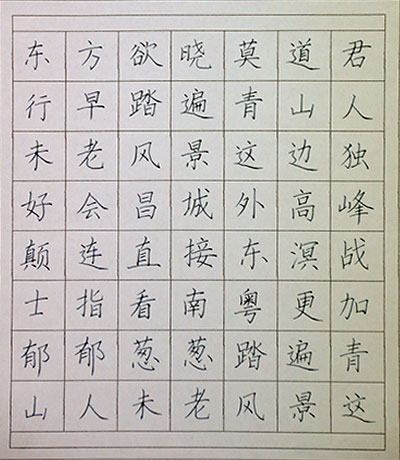 东方欲晓莫道君
行早踏遍青山人
未老风景这边独
好会昌城外高峰
颠连直接东溟战
士指看南粤更加
郁郁葱葱踏遍青
山人未老风景这